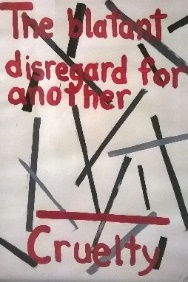 The blatant
disregard for
another
Cruelty